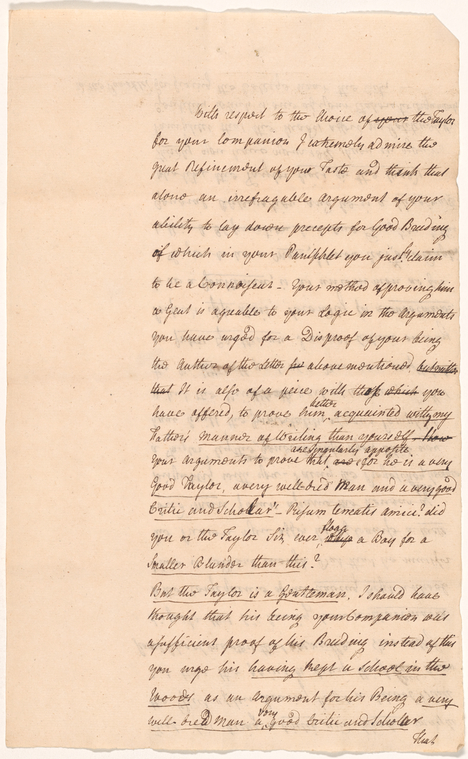 With respect to the Choice of your the Taylor
for your Companion I extremely admire the
great Refinement of your Taste and think that
alone an irrefragable argument of your
ability to lay down precepts for Good Breeding
of which in your Pamphlet you justly claim
to be a Connoiseur - Your method of proving him
a Gent is agreable to your Logic in the Arguments
you have urged for a Disproof of your being
the Author of the Letter above mentioned
that It is also of a peice with those which you
have offered, to prove him better acquainted with my
Father's manner of Writing than yourself. How
your Arguments to prove that are singularly apposite for he is a very
Good Taylor, a very well-bred Man and a very good
Critic and Scholar. Risum teneatis amici? did
you or the Taylor Sir, ever flogg a Boy for a
Smaller Blunder than this?
But the Taylor is a Gentleman, I should have
thought that his being your Companion was
a sufficient proof of his Breeding instead of this
you urge his having kept a School in the
Woods as an Argument for his Being a very
well-bred Man a very good Critic and Scholar
that